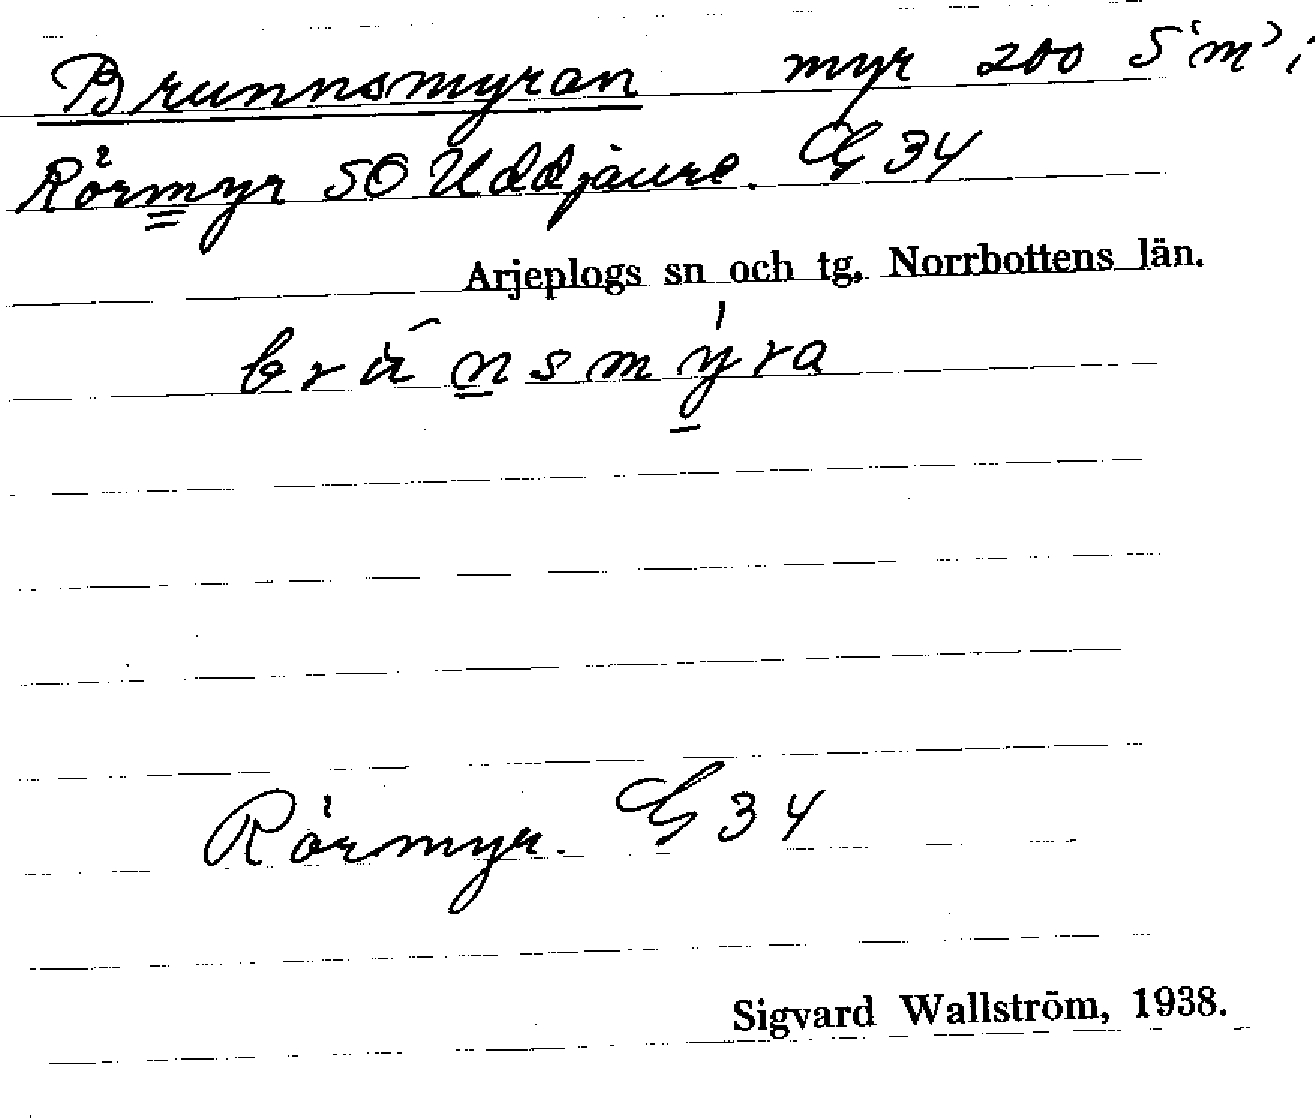 Brunnsmyran myr 200 S 'm' i
Rörmyr SO Uddjaure. G 34
Arjeplogs sn och tg, Norrbottens län.
brùnsmýra
Rörmyr. G 34
Sigvard Wallström, 1938.